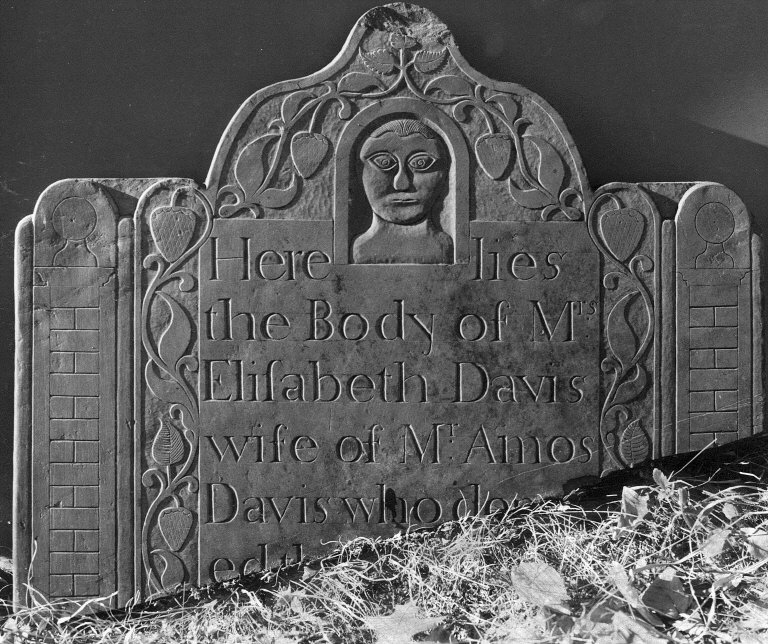 Here lies
the Body of Mrs
Eliſabeth Davis
wife of Mr Amos
Davis who
ed